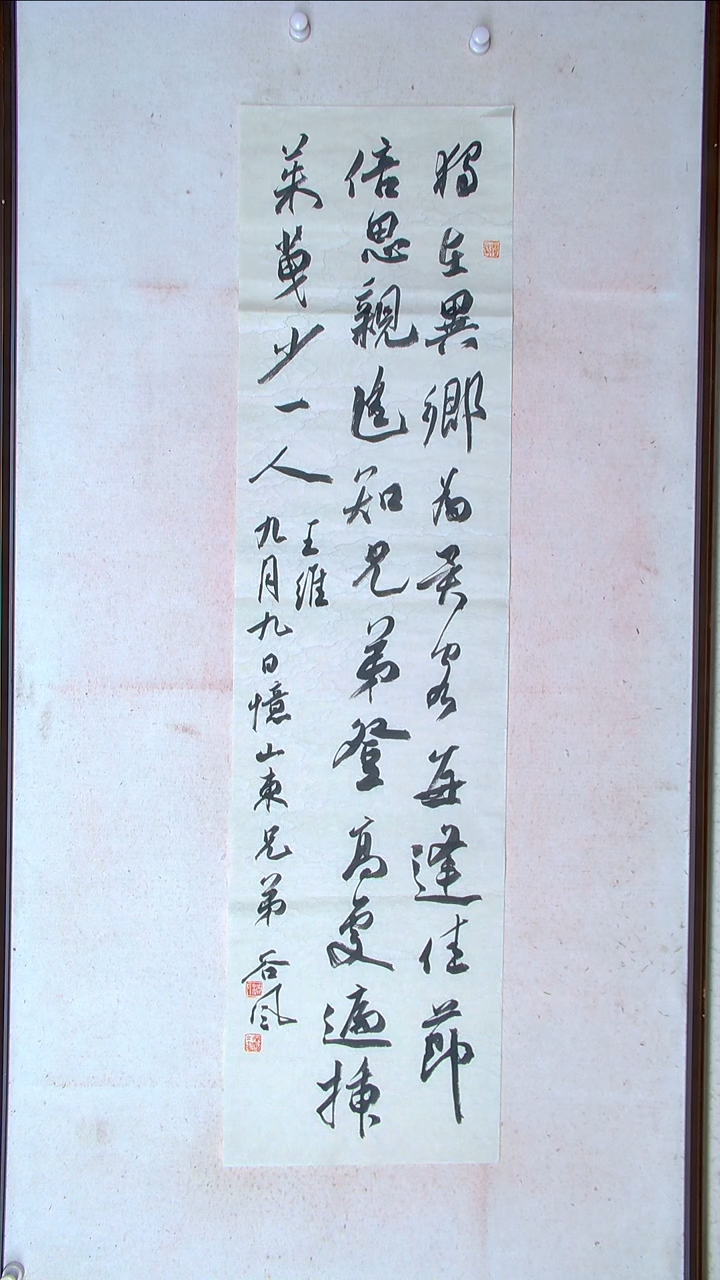 獨在異鄉為異客每逢佳節
倍思親遙知兄弟登高處遍插
茱萸少一人
王維
九月九日憶山東兄弟